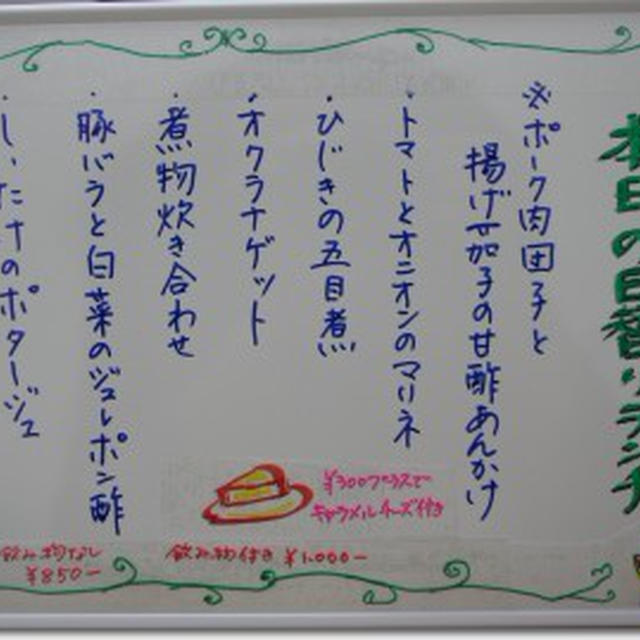 本日の日替りランチ
※ポーク肉団子と
揚げ茄子の甘酢あんかけ
・トマトとオニオンのマリネ
・ひじきの五目煮
・オクラナゲット
・煮物炊き合わせ
・豚バラと白菜のジュレポン酢
・しいたけのポタージュ
¥300プラスで
キャラメルチーズ付き
飲み物付き ¥1,000ー
飲み物なし
¥850ー